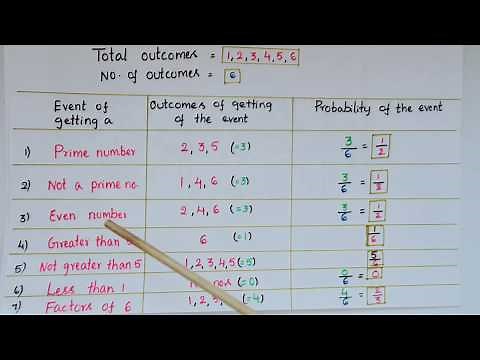 Total outcomes = 1, 2, 3, 4, 5, 6
No. of outcomes = 6
Event of getting a
Outcomes of getting of the event
Probability of the event
1) Prime number 2, 3, 5 (=3) 3/6 = 1/2
2) Not a prime no. 1, 4, 6 (=3) 3/6 = 1/2
3) Even number 2, 4, 6 (=3) 3/6 = 1/2
4) Greater than 5 6 (=1) 1/6
5) Not greater than 5 1, 2, 3, 4, 5 (=5) 5/6
6) Less than 1 nos (=0) 0/6 = 0
7) Factors of 6 1, 2, 3, (=4) 4/6 = 2/3